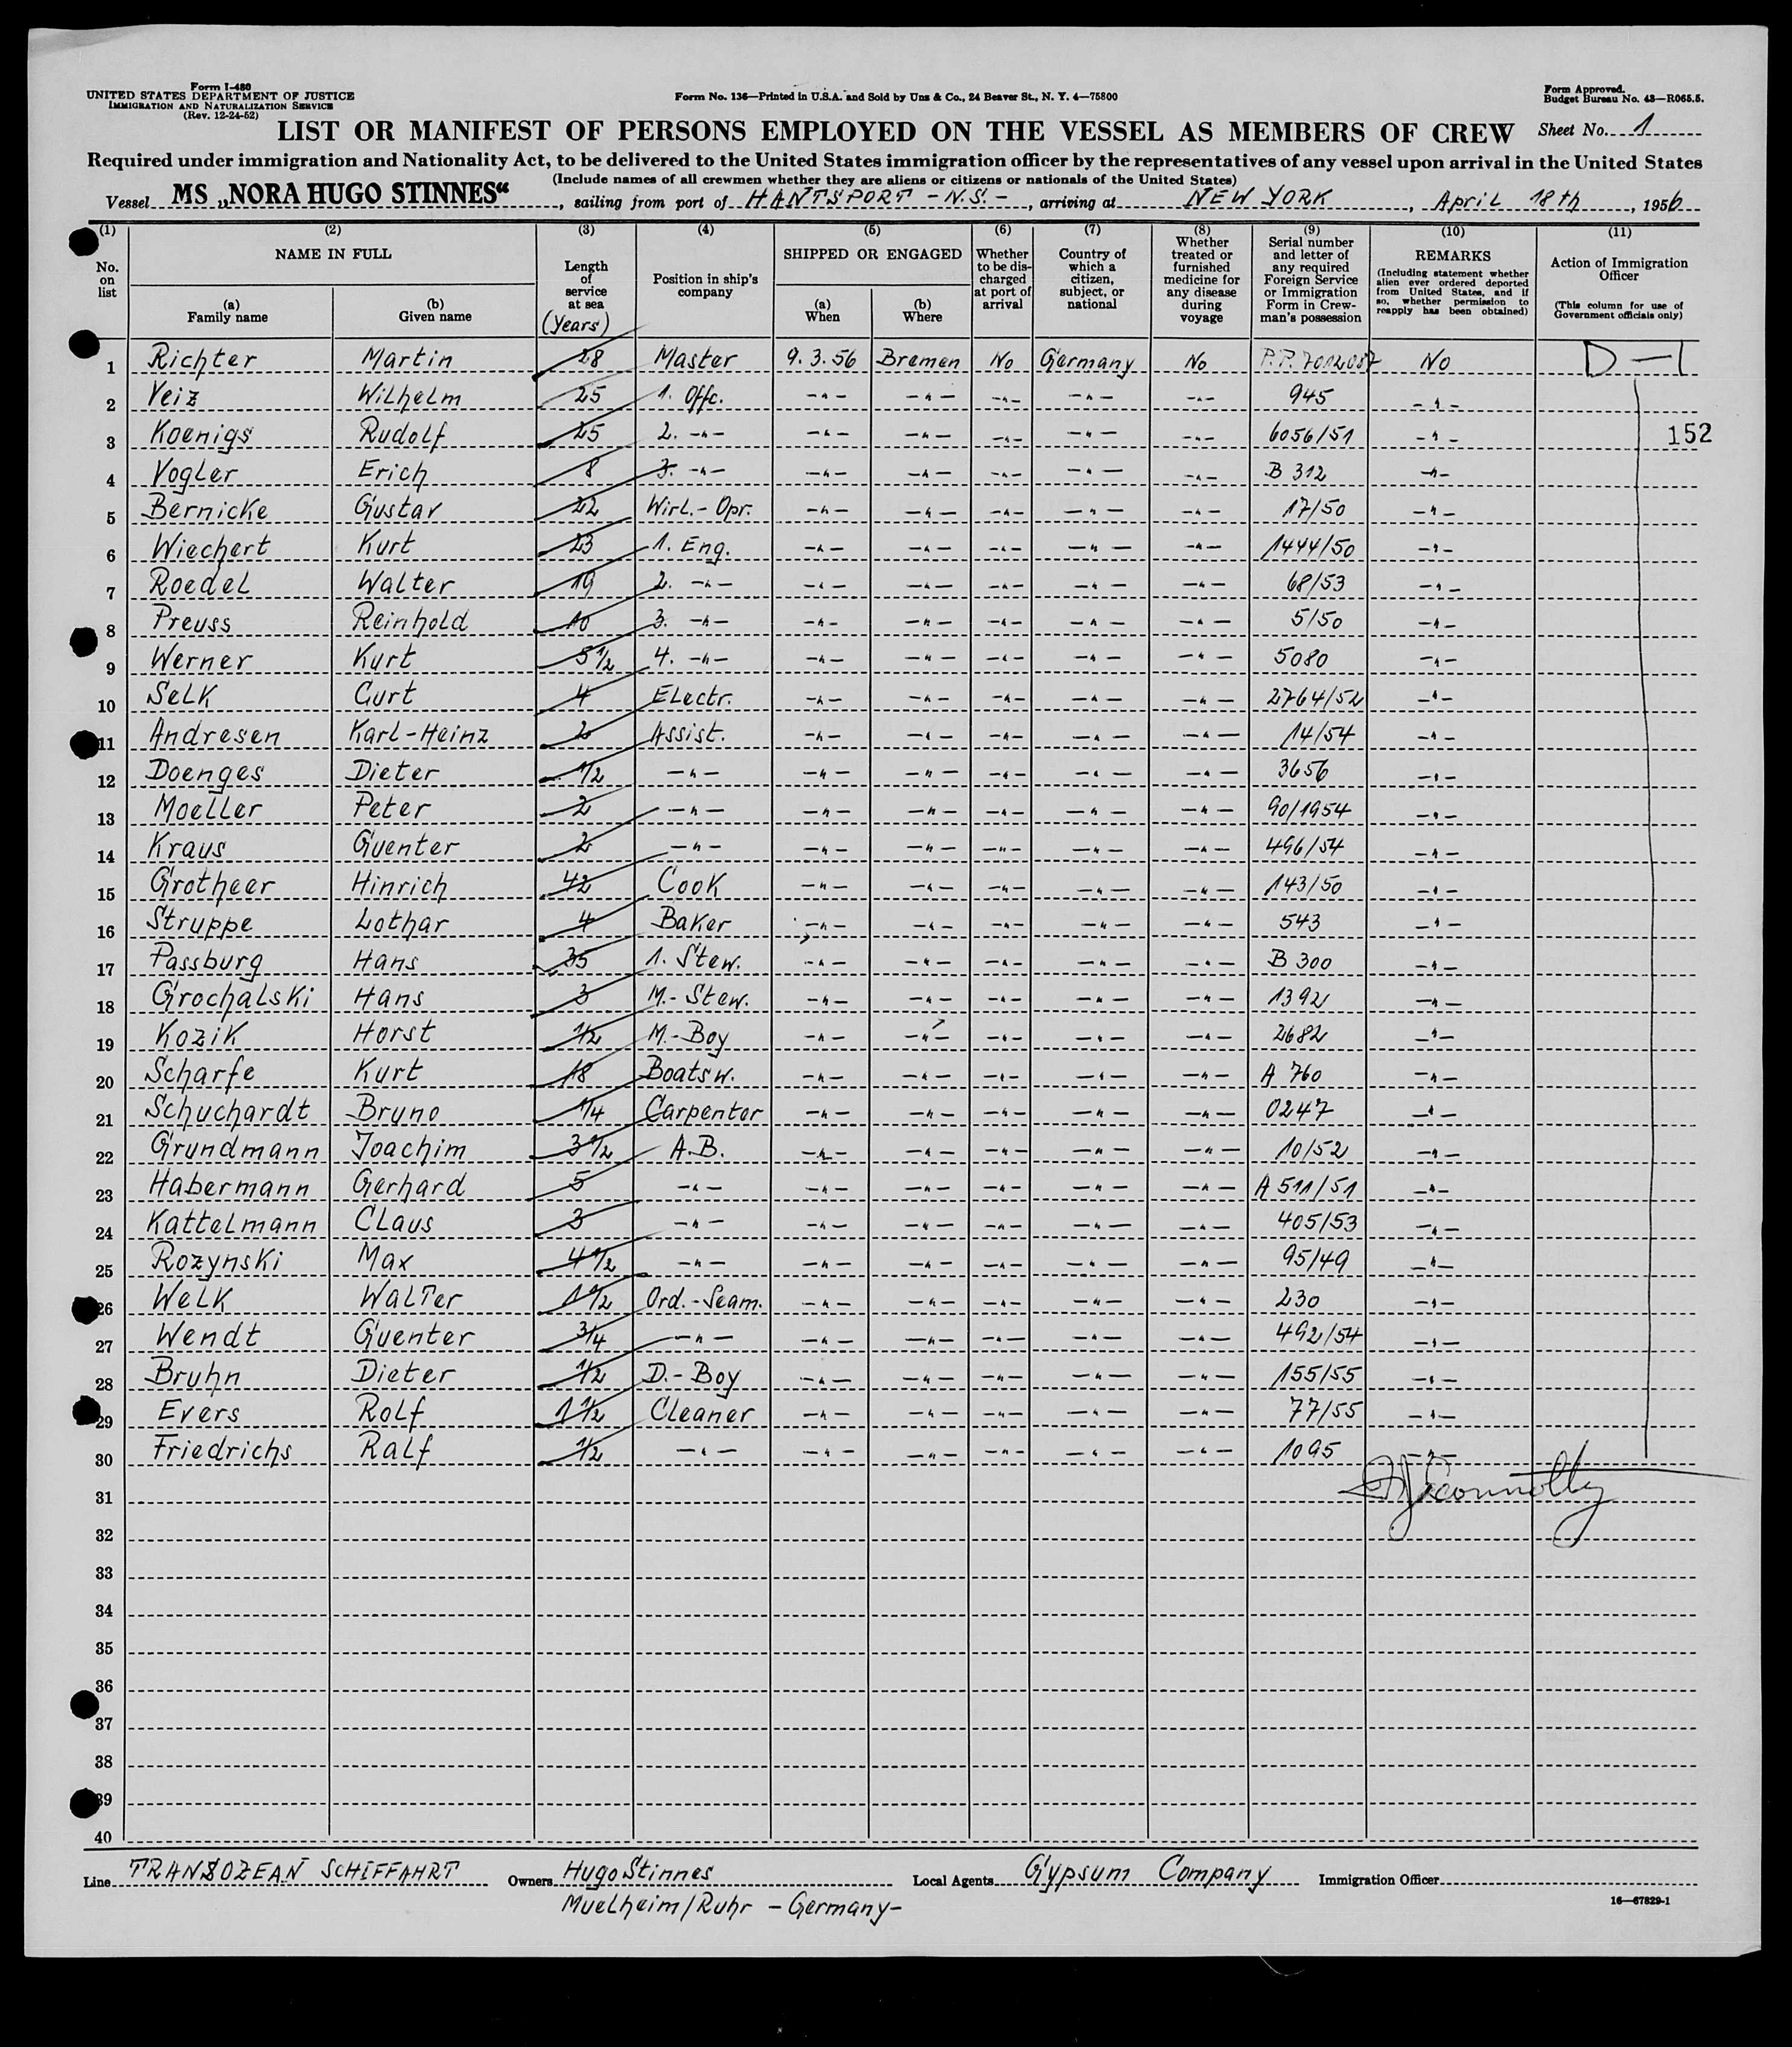 Form I-480
UNITED STATES DEPARTMENT OF JUSTICE
IMMIGRATION AND NATURALIZATION SERVICE
(Rev. 12-24-52)
Form No. 136—Printed in U.S.A. and Sold by Unz & Co., 24 Beaver St., N. Y. 4—75800
Form Approved.
Budget Bureau No. 43—R065.5.
LIST OR MANIFEST OF PERSONS EMPLOYED ON THE VESSEL AS MEMBERS OF CREW Sheet No. 1
Required under immigration and Nationality Act, to be delivered to the United States immigration officer by the representatives of any vessel upon arrival in the United States
(Include names of all crewmen whether they are aliens or citizens or nationals of the United States)
Vessel MS „NORA HUGO STINNES“, sailing from port of HANTSPORT - N.S. -, arriving at NEW YORK, April 18th, 1956
(1) (2) (3) (4) (5) (6) (7) (8) (9) (10) (11)
No. on list
NAME IN FULL
(a) Family name
(b) Given name
Length of service at sea (Years)
Position in ship's company
SHIPPED OR ENGAGED
(a) When
(b) Where
Whether to be discharged at port of arrival
Country of which a citizen, subject, or national
Whether treated or furnished medicine for any disease during voyage
Serial number and letter of any required Foreign Service or Immigration Form in Crewman's possession
REMARKS
(Including statement whether alien ever ordered deported from United States, and if so, whether permission to reapply has been obtained)
Action of Immigration Officer
(This column for use of Government officials only)
1 Richter Martin 28 Master 9.3.56 Bremen No Germany No P.P. 7012087 No D—1
2 Veiz Wilhelm 25 1. Offc. -"- -"- -"- -"- -"- 945 -"-
3 Koenigs Rudolf 25 2. -"- -"- -"- -"- -"- -"- 6056/51 -"- 152
4 Vogler Erich 8 3. -"- -"- -"- -"- -"- -"- B 312 -"-
5 Bernicke Gustav 22 Wirl.- Opr. -"- -"- -"- -"- -"- 17/50 -"-
6 Wiechert Kurt 23 1. Eng. -"- -"- -"- -"- -"- 1444/50 -"-
7 Roedel Walter 19 2. -"- -"- -"- -"- -"- -"- 68/53 -"-
8 Preuss Reinhold 10 3. -"- -"- -"- -"- -"- -"- 5/50 -"-
9 Werner Kurt 5 1/2 4. -"- -"- -"- -"- -"- -"- 5080 -"-
10 Selk Curt 4 Electr. -"- -"- -"- -"- -"- 2764/52 -"-
11 Andresen Karl-Heinz 2 Assist. -"- -"- -"- -"- -"- 14/54 -"-
12 Doenges Dieter 1/2 -"- -"- -"- -"- -"- -"- 3656 -"-
13 Moeller Peter 2 -"- -"- -"- -"- -"- -"- 90/1954 -"-
14 Kraus Guenter 2 -"- -"- -"- -"- -"- -"- 496/54 -"-
15 Grotheer Hinrich 42 Cook -"- -"- -"- -"- -"- 143/50 -"-
16 Struppe Lothar 4 Baker -"- -"- -"- -"- -"- 543 -"-
17 Passburg Hans 35 1. Stew. -"- -"- -"- -"- -"- B 300 -"-
18 Grochalski Hans 3 M.- Stew. -"- -"- -"- -"- -"- 1392 -"-
19 Kozik Horst 1/2 M.- Boy -"- -"- -"- -"- -"- 2682 -"-
20 Scharfe Kurt 18 Boatsw. -"- -"- -"- -"- -"- A 760 -"-
21 Schuchardt Bruno 1/4 Carpenter -"- -"- -"- -"- -"- 0247 -"-
22 Grundmann Joachim 3 1/2 A.B. -"- -"- -"- -"- -"- 10/52 -"-
23 Habermann Gerhard 5 -"- -"- -"- -"- -"- -"- A 511/51 -"-
24 Kattelmann Claus 3 -"- -"- -"- -"- -"- -"- 405/53 -"-
25 Rozynski Max 4 1/2 -"- -"- -"- -"- -"- -"- 95/49 -"-
26 Welk Walter 1 1/2 Ord.- Seam. -"- -"- -"- -"- -"- 230 -"-
27 Wendt Guenter 3/4 -"- -"- -"- -"- -"- -"- 492/54 -"-
28 Bruhn Dieter 1/2 D.- Boy -"- -"- -"- -"- -"- 155/55 -"-
29 Evers Rolf 1 1/2 Cleaner -"- -"- -"- -"- -"- 77/55 -"-
30 Friedrichs Ralf 1/2 -"- -"- -"- -"- -"- -"- 1095 -"-
31
32
33
34
35
36
37
38
39
40
Line TRANSOZEAN SCHIFFAHRT Owners Hugo Stinnes Local Agents Gypsum Company Immigration Officer
Muelheim/Ruhr - Germany-
16—67829-1